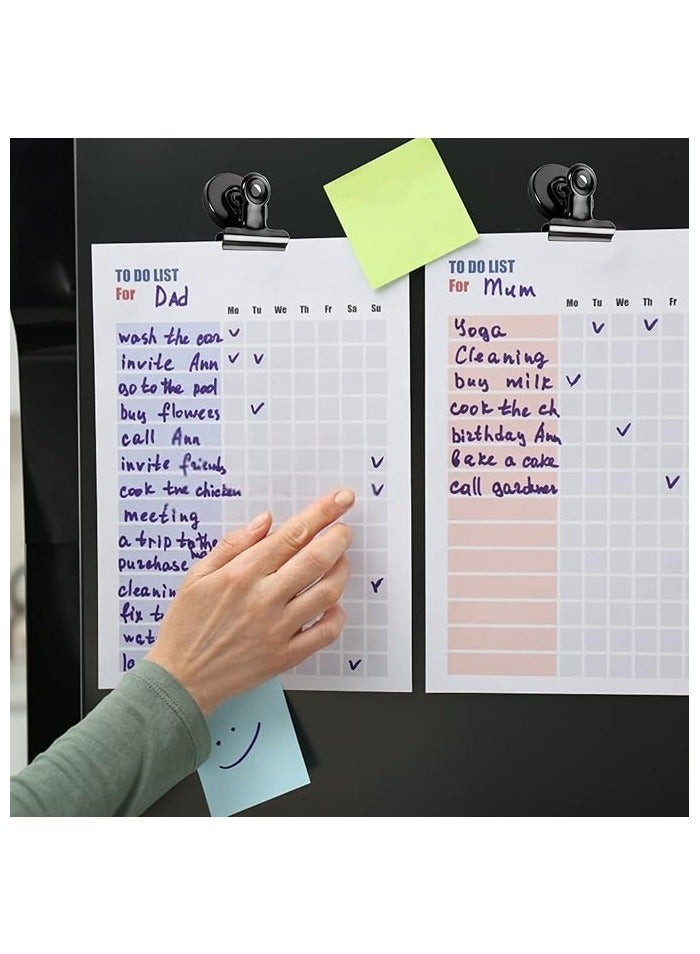 TO DO LIST
For Dad
Mo Tu We Th Fr Sa Su
wash the car
invite Ann
go to the pool
buy flowers
call Ann
invite friends
cook the chicken
meeting
a trip to the
purchase
cleanin
fix t
wat
la
TO DO LIST
For Mum
Mo Tu We Th Fr
Yoga
Cleaning
buy milk
cook the ch
birthday Ann
bake a cake
call gardner